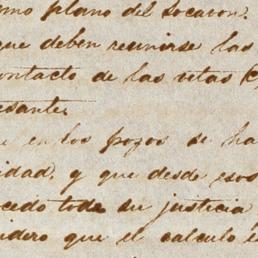 omo plano del socavon.
que deben reunirse las
contacto de las vetas (C
esante.
e en los pozos se ha
idad, y que desde esos
cedo toda su justicia
sidero que el calculo e